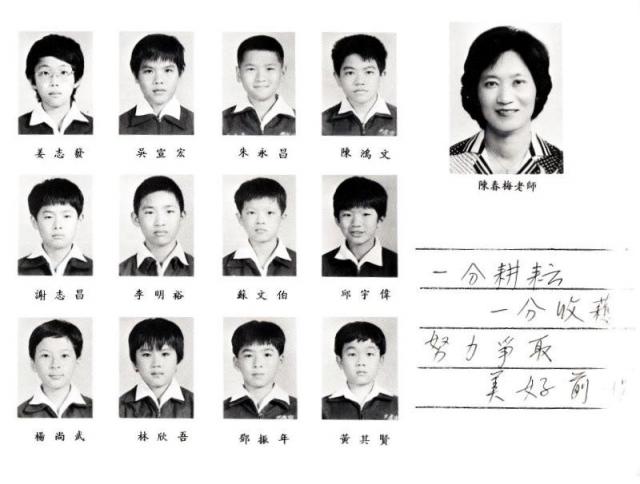 姜志發 吳宣宏 朱永昌 陳鴻文
陳春梅老師
謝志昌 李明裕 蘇文伯 邱宇偉
一分耕耘
一分收穫
努力爭取
美好前
楊尚武 林欣吾 鄧振年 黃其賢